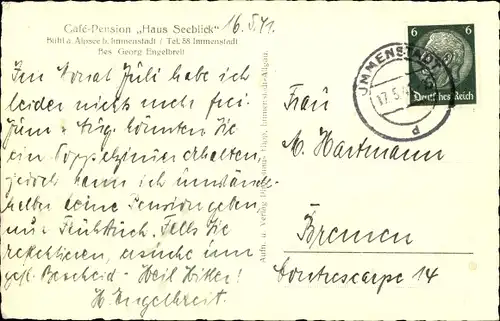 Café-Pension „Haus Seeblick"
Bühl a. Alpsee b. Immenstadt / Tel. 88 Immenstadt
Bes. Georg Engelbreit
16.5.41.
Im Monat Juli habe ich
leider nichts mehr frei.
Juni - Aug. könnten Sie
ein Doppelzimmer erhalten,
jedoch kann ich umstände
halber keine Pension geben
nur Frühstück. Falls Sie
reflektieren, ersuche um
gefl. Bescheid - Heil Hitler!
H. Engelbreit.
Aufn. u. Verlag Immenstadt-Allgäu.
6 6
Deutsches Reich
IMMENSTADT
17.5.4
d
Frau
M. Hartmann
Bremen
Contrescarpe 14